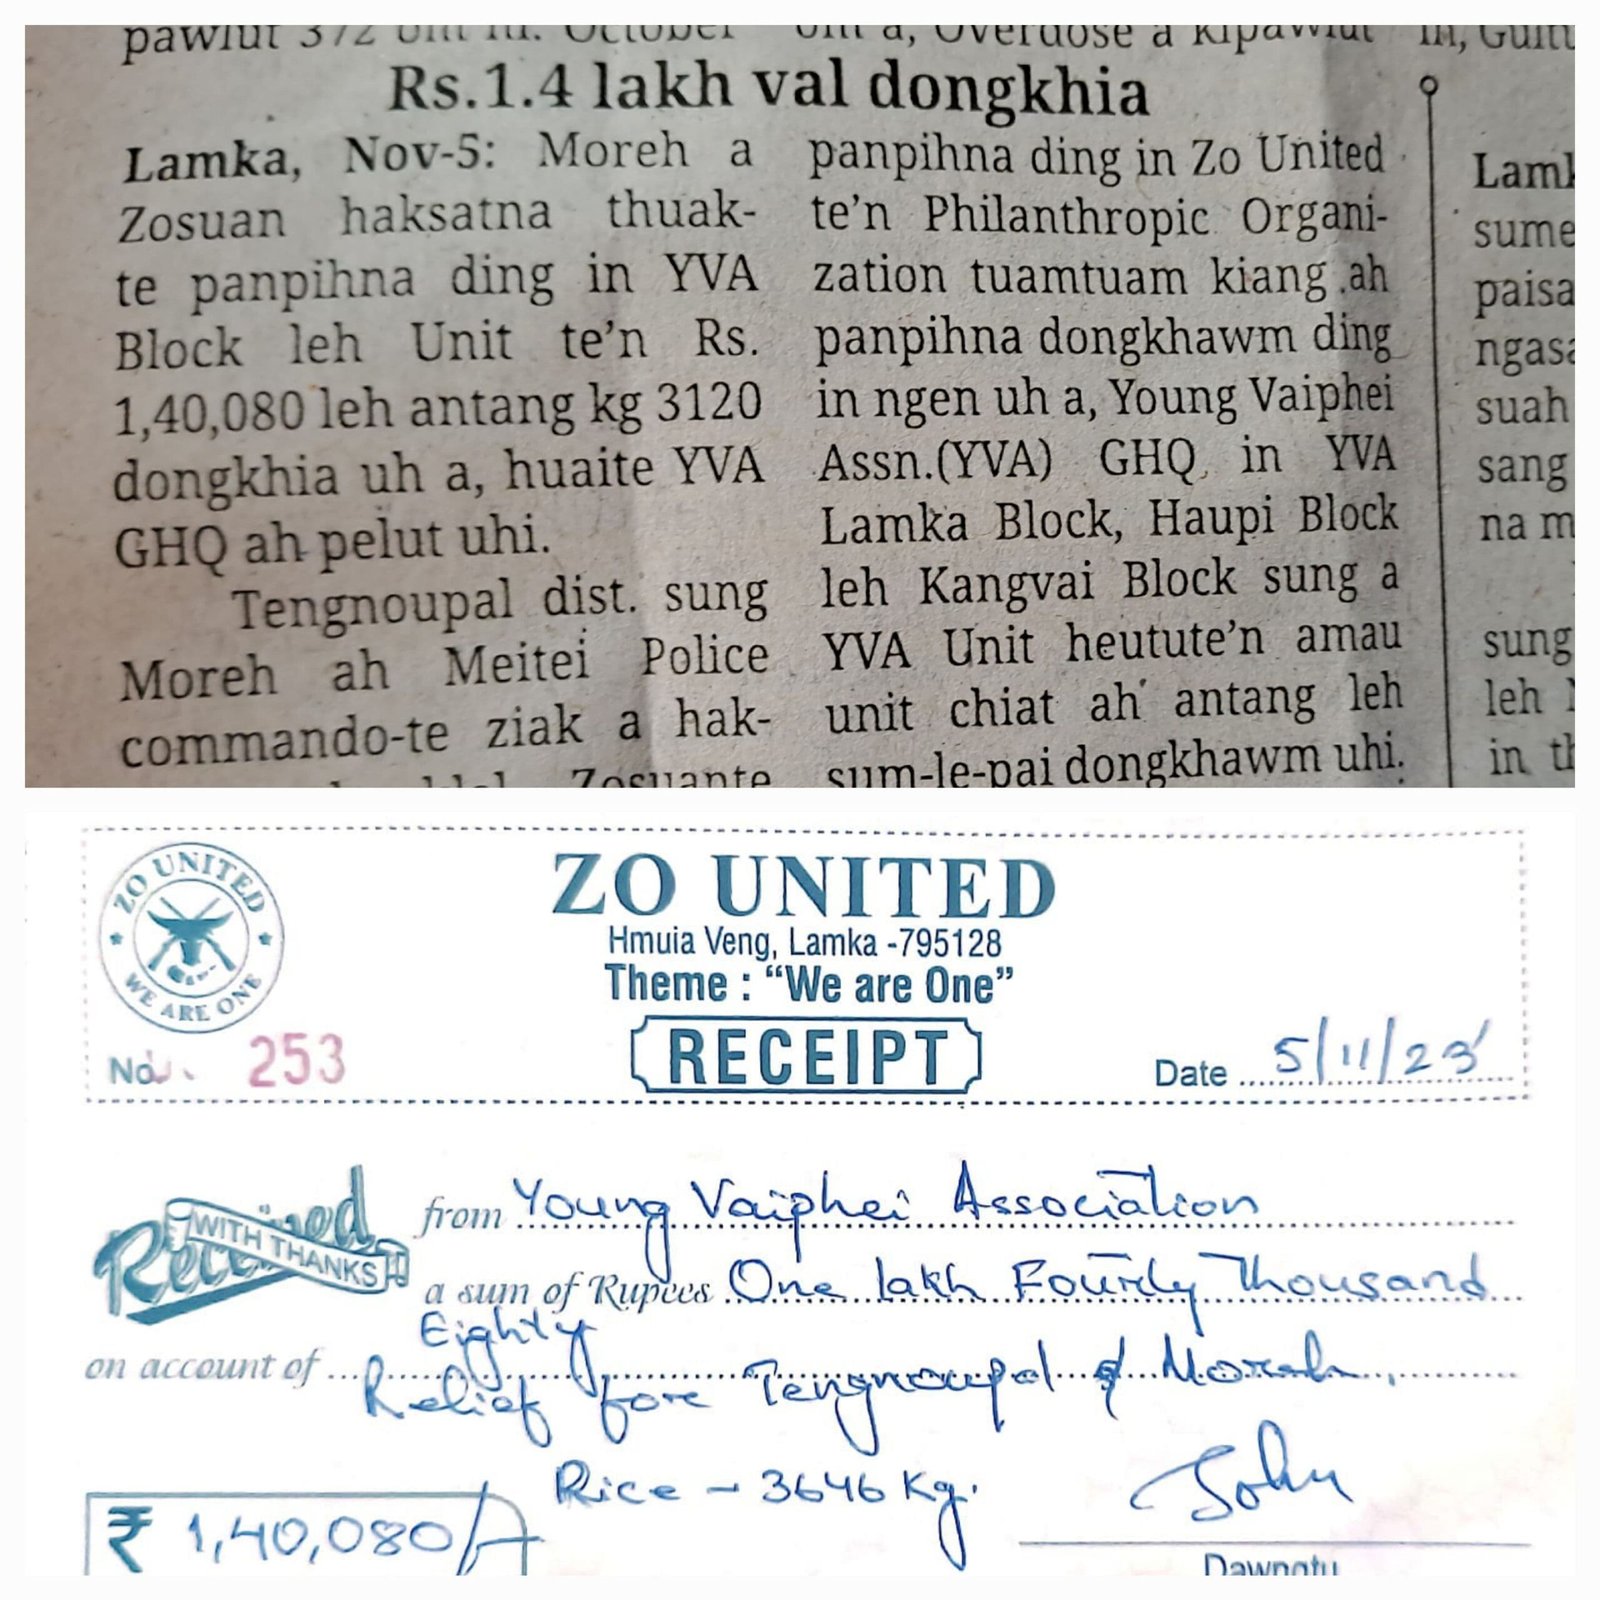 pawlut 372
Rs.1.4 lakh val dongkhia
Lamka, Nov-5: Moreh a
Zosuan haksatna thuak-
te panpihna ding in YVA
Block leh Unit te’n Rs.
1,40,080 leh antang kg 3120
dongkhia uh a, huaite YVA
GHQ ah pelut uhi.
Tengnoupal dist. sung
Moreh ah Meitei Police
commando-te ziak a hak-
Zosuante
October
a, Overdose a kipawlut
panpihna ding in Zo United
te’n Philanthropic Organi-
zation tuamtuam kiang ah
panpihna dongkhawm ding
in ngen uh a, Young Vaiphei
Assn.(YVA) GHQ in YVA
Lamka Block, Haupi Block
leh Kangvai Block sung a
YVA Unit heutute’n amau
unit chiat ah antang leh
sum-le-pai dongkhawm uhi.
in,
sume
paisa
suah
sang
na m
sung
leh
in
ZO UNITED
WE ARE ONE
ZO UNITED
Hmuia Veng, Lamka -795128
Theme : “We are One”
RECEIPT
No. 253
Date 5/11/23
Received WITH THANKS
from Young Vaiphei Association
a sum of Rupees One lakh Fourty Thousand
Eighty
on account of Relief for Tengnoupal & Moreh,
Rice - 3646 Kg.
John
₹ 1,40,080/-
Dawngtu